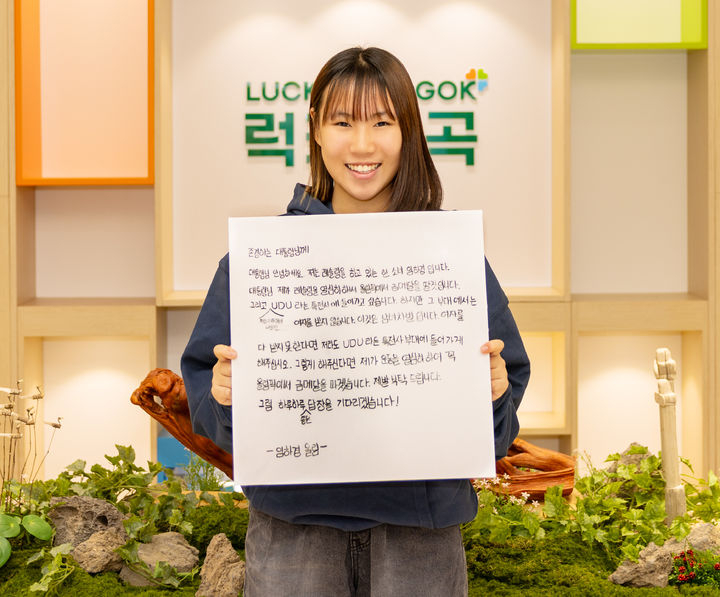 LUCK GOK
럭 곡
존경하는 대통령님께
대통령님 안녕하세요. 저는 레슬링을 하고 있는 한 소녀 염하경 입니다.
대통령님 제가 레슬링을 열심히해서 올림픽에서 금메달을 딸것 입니다.
그리고 UDU 라는 특전사에 들어가고 싶습니다. 하지만 그 부대에서는
여자를 받지 않습니다. 이것은 남녀차별 입니다. 여자를
다 받지 못한다면 저라도 UDU 라는 특전사 부대에 들어가게
해주십시오. 그렇게 해주신다면 제가 운동을 열심히 하여 꼭
올림픽에서 금메달을 따겠습니다. 제발 부탁 드립니다.
그럼 하루하루 답장을 기다리겠습니다!
좋은
-염하경 올림-